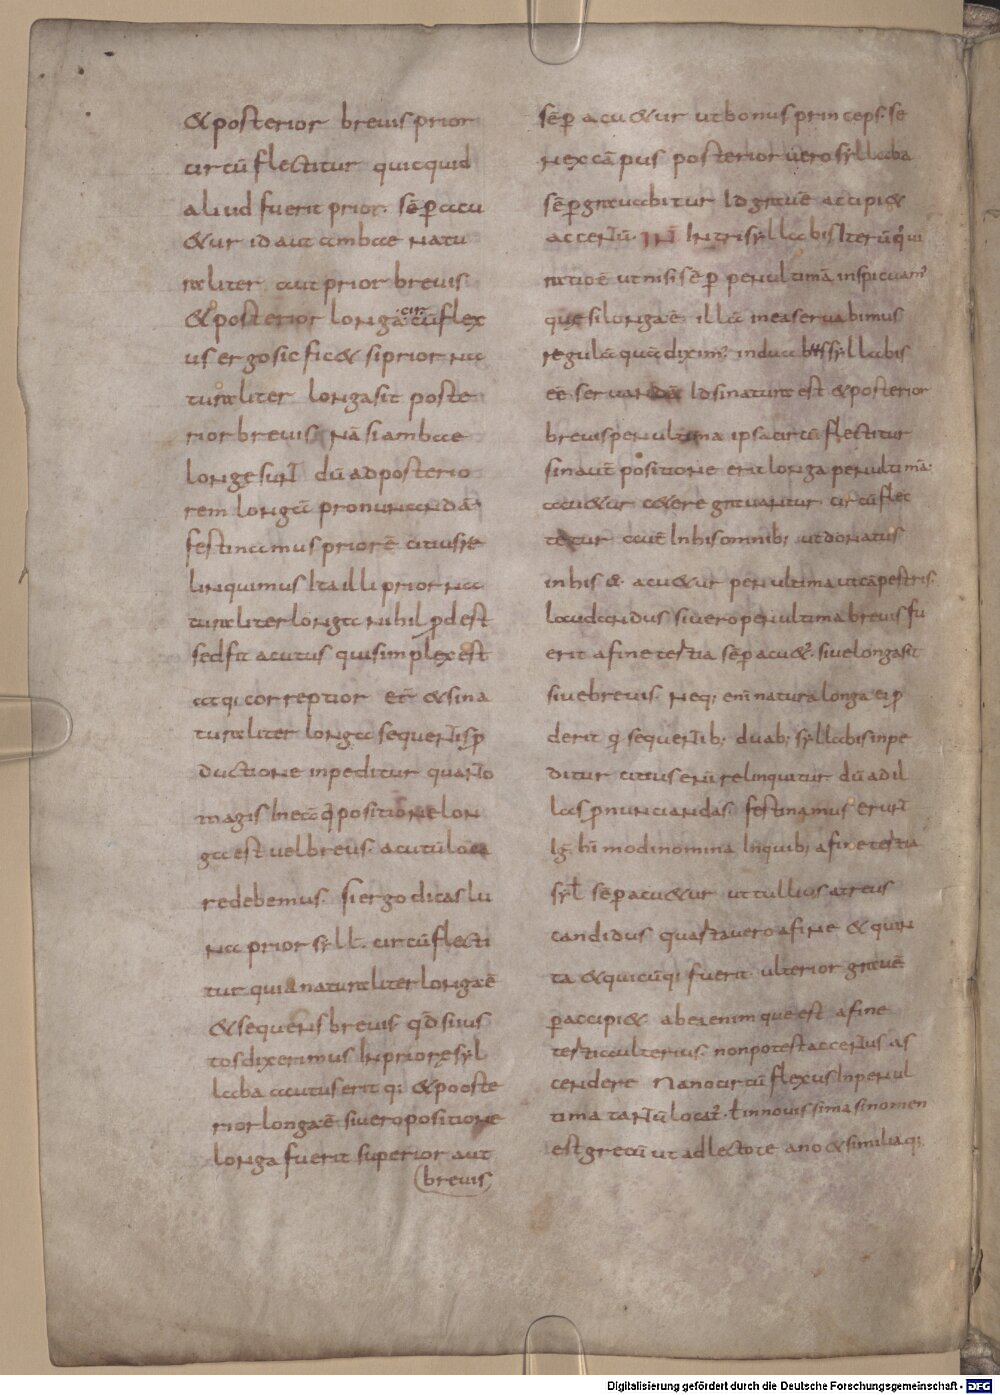 &posterior breuis prior
circū flectitur quicquid
aliud fuerit prior. sēp̄ acu
&ur id aut ambae natu
raliter aut prior breuis.
&posterior longa. circūflex
us ergo sic fic& si prior na
turaliter longa sit poste
rior breuis. nā si ambae
longe sunt dū ad posterio
rem longā pronuncandā
festinamus priorē citius re
linquimus Ita illi prior na
turaliter longa nihil p̄dest
sed fit acutus qui simplex est
atqi correptior et̄ & si na
turaliter longa sequentis p̄
ductione inpeditur quanto
magis In ea q̄ positione lon
ga est uel breuis. acutū loca
re debemus. si ergo dicas lu
na prior syll̄. circūflecti
tur quia naturaliter longa ē
& sequens breuis. qd̄ si us
tos dixerimus In priore syl
laba acutus erit q; & pooste
rior longa ē. siuero positione
longa fuerit superior aut
breuis
sēp̄ acu&ur ut bonus princeps. se
nex cāpus posterior uero syllaba
sēp̄ grauabitur Id grauē accipi&
accentū. IN In trisyllabis Iterū q̇ui
ratio ē ut nisi sēp̄ penultimā inspiciam̄
que si longa ē. illā mea seruabimus
regulā quā diximꝰ. in duab; syllabis
eē seruandā Id si natura est & posterior
breuis penultima ipsa circū flectitur
sin autē positione erit longa penultimā.
acu&ur c&ere grauantur circūflec
tetur autē In his omnib; ut donatus
in his &. acu&ur penultima ut cāpestris.
laudandus siuero penultima breuis fu
erit a fine tertia sēp̄ acu&ꝰ. siue longa sit
siue breuis. neq; eni natura longa ei p̄
derit q̇ sequentib; duab; syllabis inpe
ditur citius enī relinquitur dū ad il
las p̄nunciandas. festinamus erunt
Ig̅ h̄i modi nomina In quib; a fine tertia
syl̄ sēp̄ acu&ur ut tullius atreus
candidus quarta uero a fine & quin
ta & quicūqi fuerit. ulterior grauē
p̄accipi& ab ea enim que est a fine
tertia ulterius. non potest accentus as
cendere Nano circū flexus In penul
tima tantū locatꝰ. t̄ in nouissima si nomen
est grecū ut ad lectore ano & similia q;
Digitalisierung gefördert durch die Deutsche Forschungsgemeinschaft - DFG